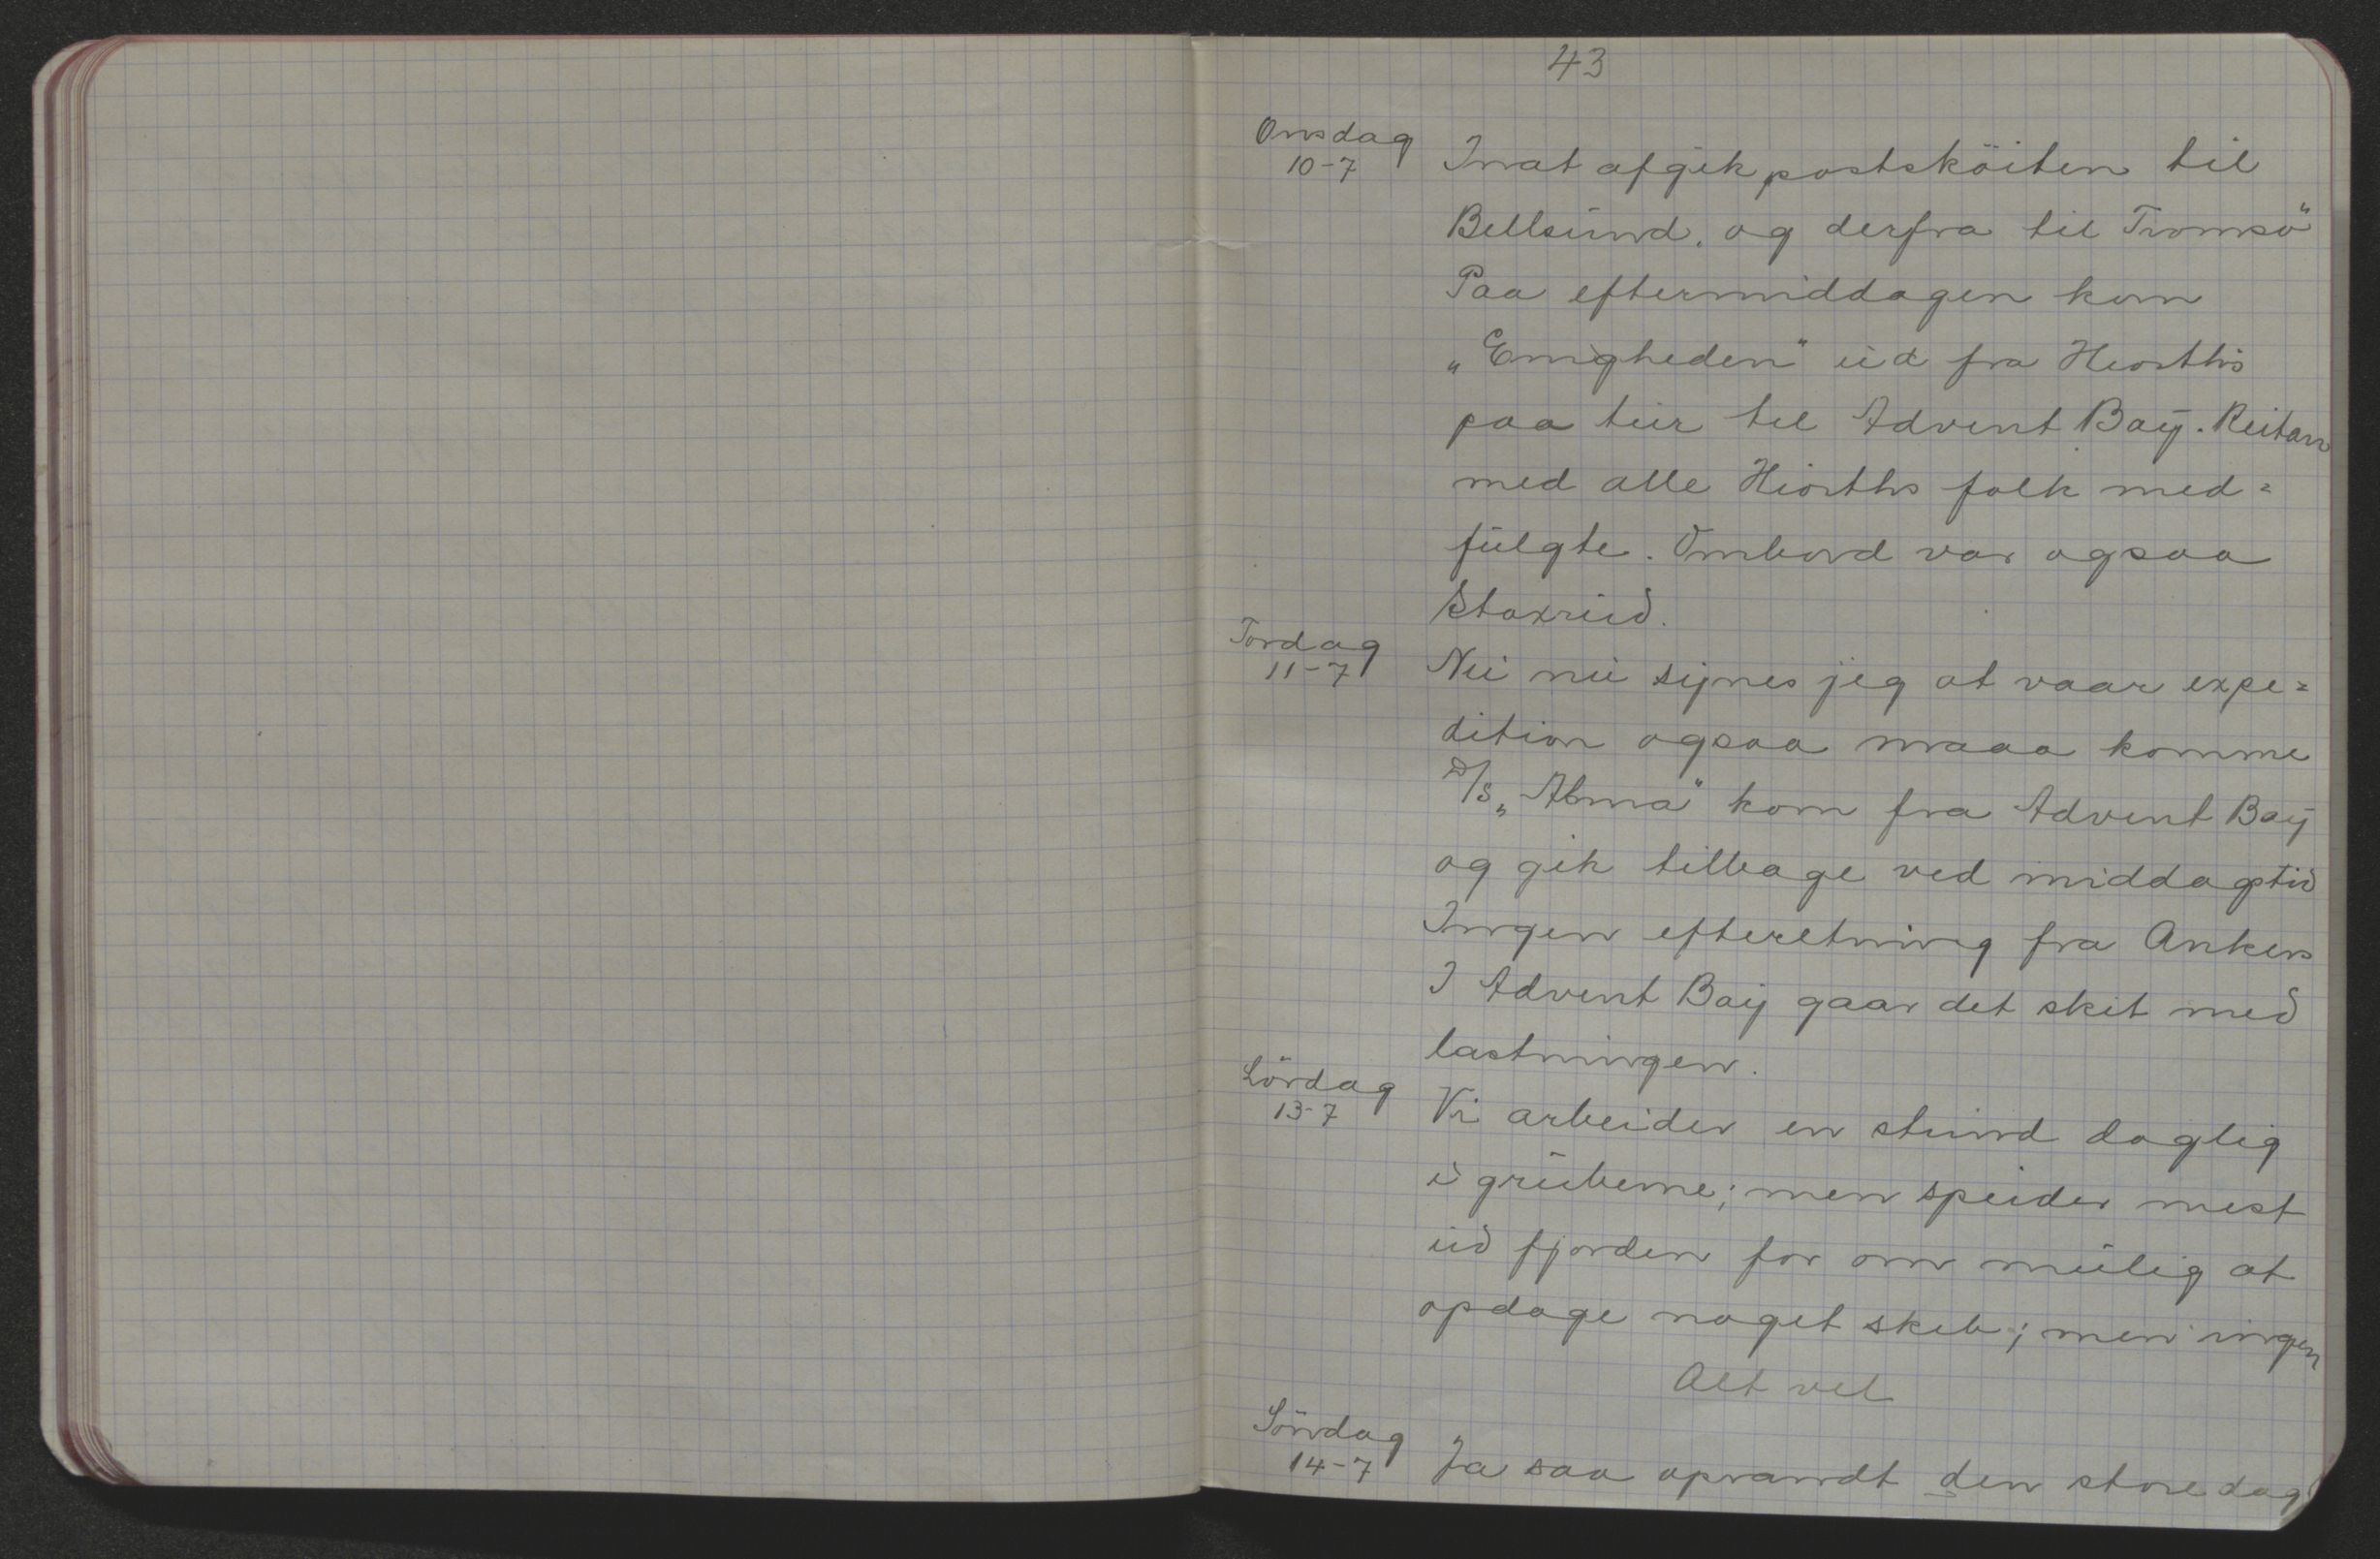 43
Onsdag
10-7
Inat afgik postsköiten til
Bellsund. og derfra til Tromsö
Paa eftermiddagen kom
„Enigheden" ud fra Hiorths
paa tur til Advent Bay. Reitan
med alle Hiorths folk med=
fulgte. Ombord var ogsaa
Staxrud.
Tordag
11-7
Nu nu synes jeg at vaar expe=
dition ogsaa maaa komme
D/S „Alma" kom fra Advent Bay
og gik tilbage ved middagstid
Ingen efteretning fra Ankers
I Advent Bay gaar det skit med
lastningen.
Lördag
13-7
Vi arbeider en stund daglig
i gruberne; men speider mest
ud fjorden for om mulig at
opdage noget skib; men ingen
Alt vel
Söndag
14-7
Ja saa oprandt den store dag